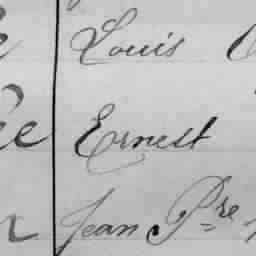 Louis
Ernest
Jean Pre